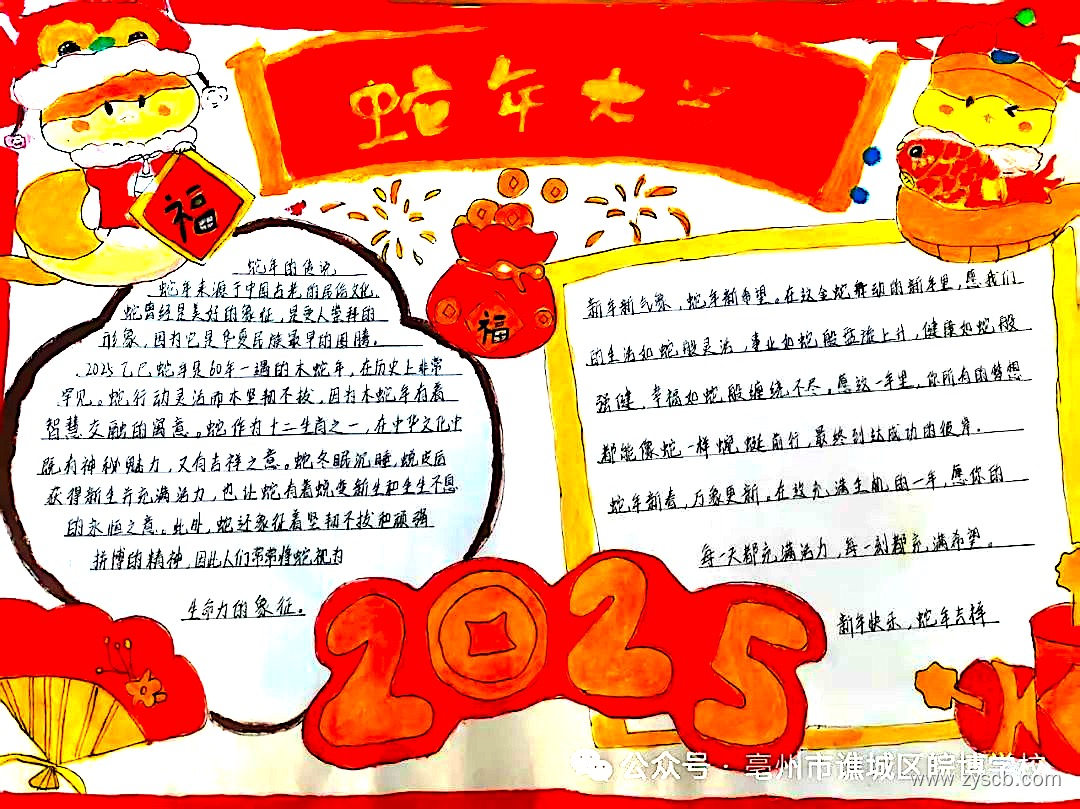 蛇年大
福
福
蛇年的传说
蛇年来源于中国古老的民俗文化
蛇曾经是美好的象征，是受人崇拜的
形象，因为它是华夏民族最早的图腾。
2025乙巳蛇年是60年一遇的木蛇年，在历史上非常
罕见。蛇行动灵活而木坚韧不拔，因为木蛇年有着
智慧交融的寓意。蛇作为十二生肖之一，在中华文化中
既有神秘魅力，又有吉祥之意。蛇冬眠沉睡，蜕皮后
获得新生并充满活力，也让蛇有着蜕变新生和生生不息
的永恒之意。此外，蛇还象征着坚韧不拔和顽强
拼博的精神，因此人们常常将蛇视为
生命力的象征。
新年新气象，蛇年新希望。在这金蛇舞动的新年里，愿我们
的生活如蛇般灵活，事业如蛇般蓝流上升，健康如蛇般
强健，幸福如蛇般缠绕不尽。愿这一年里，你所有的梦想
都能像蛇一样蜿蜒前行，最终到达成功的彼岸。
蛇年新春，万象更新。在这充满生机的一年，愿你的
每一天都充满活力，每一刻都充满希望。
新年快乐，蛇年吉祥
2025
公众号·亳州市谯城区皖博学校
www.zyscb.com